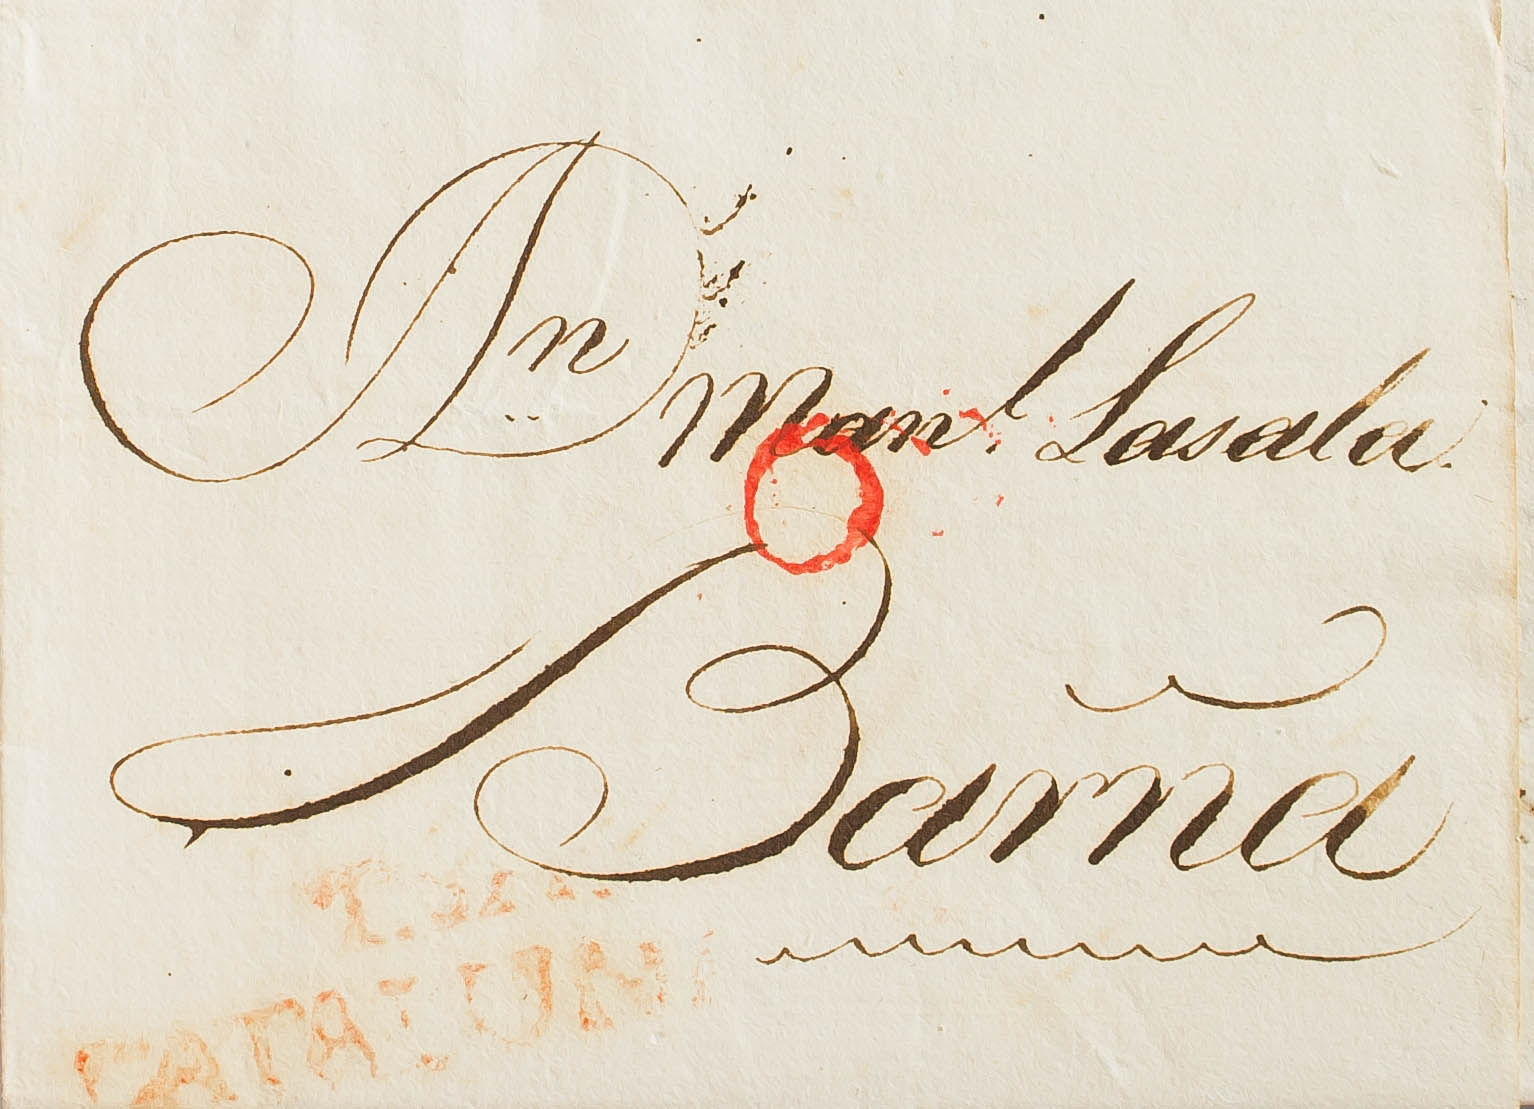 Dn Manl. Lasala
Barña
CATALUÑ